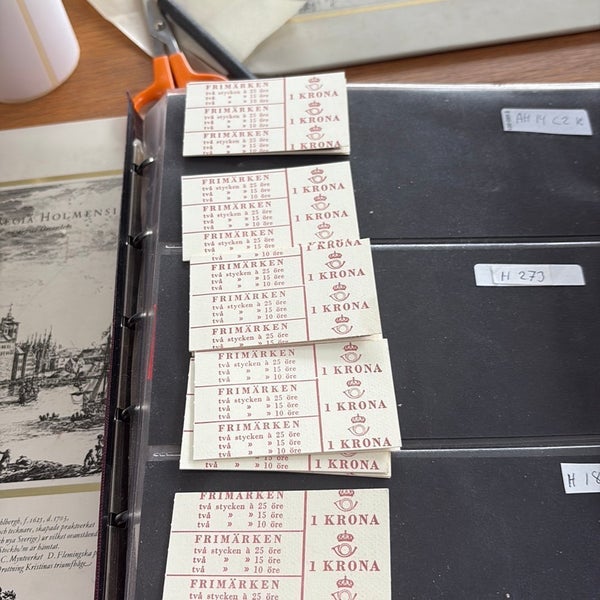 FRIMÄRKEN
två stycken à 25 öre
två » » 15 öre
två » » 10 öre
1 KRONA
FRIMÄRKEN
två stycken à 25 öre
två » » 15 öre
två » » 10 öre
1 KRONA
FRIMÄRKEN
två stycken à 25 öre
1 KRONA
FRIMÄRKEN
två stycken à 25 öre
två » » 15 öre
två » » 10 öre
1 KRONA
FRIMÄRKEN
två stycken à 25 öre
två » » 15 öre
två » » 10 öre
1 KRONA
FRIMÄRKEN
två stycken à 25 öre
två » » 15 öre
två » » 10 öre
1 KRONA
FRIMÄRKEN
två stycken à 25 öre
två » » 15 öre
två » » 10 öre
1 KRONA
FRIMÄRKEN
två stycken à 25 öre
två » » 15 öre
två » » 10 öre
1 KRONA
FRIMÄRKEN
FRIMÄRKEN
två stycken à 25 öre
två » » 15 öre
två » » 10 öre
1 KRONA
FRIMÄRKEN
två stycken à 25 öre
två » » 15 öre
två » » 10 öre
1 KRONA
FRIMÄRKEN
två stycken à 25 öre
två » » 15 öre
två » » 10 öre
1 KRONA
två » » 10 öre
1 KRONA
FRIMÄRKEN
två stycken à 25 öre
två » » 15 öre
två » » 10 öre
1 KRONA
FRIMÄRKEN
två stycken à 25 öre
två » » 15 öre
två » » 10 öre
1 KRONA
FRIMÄRKEN
två stycken à 25 öre
H 273
H 18
REGIA HOLMENSI
hlberg, f. 1625, d. 1703.
och tecknare, skapade praktverket
na och nya Sverige) ur vilket ovanstående
Stockholm är hämtat.
C. Myntverket D. Flemingska pa
rottning Kristinas triumfbåge.